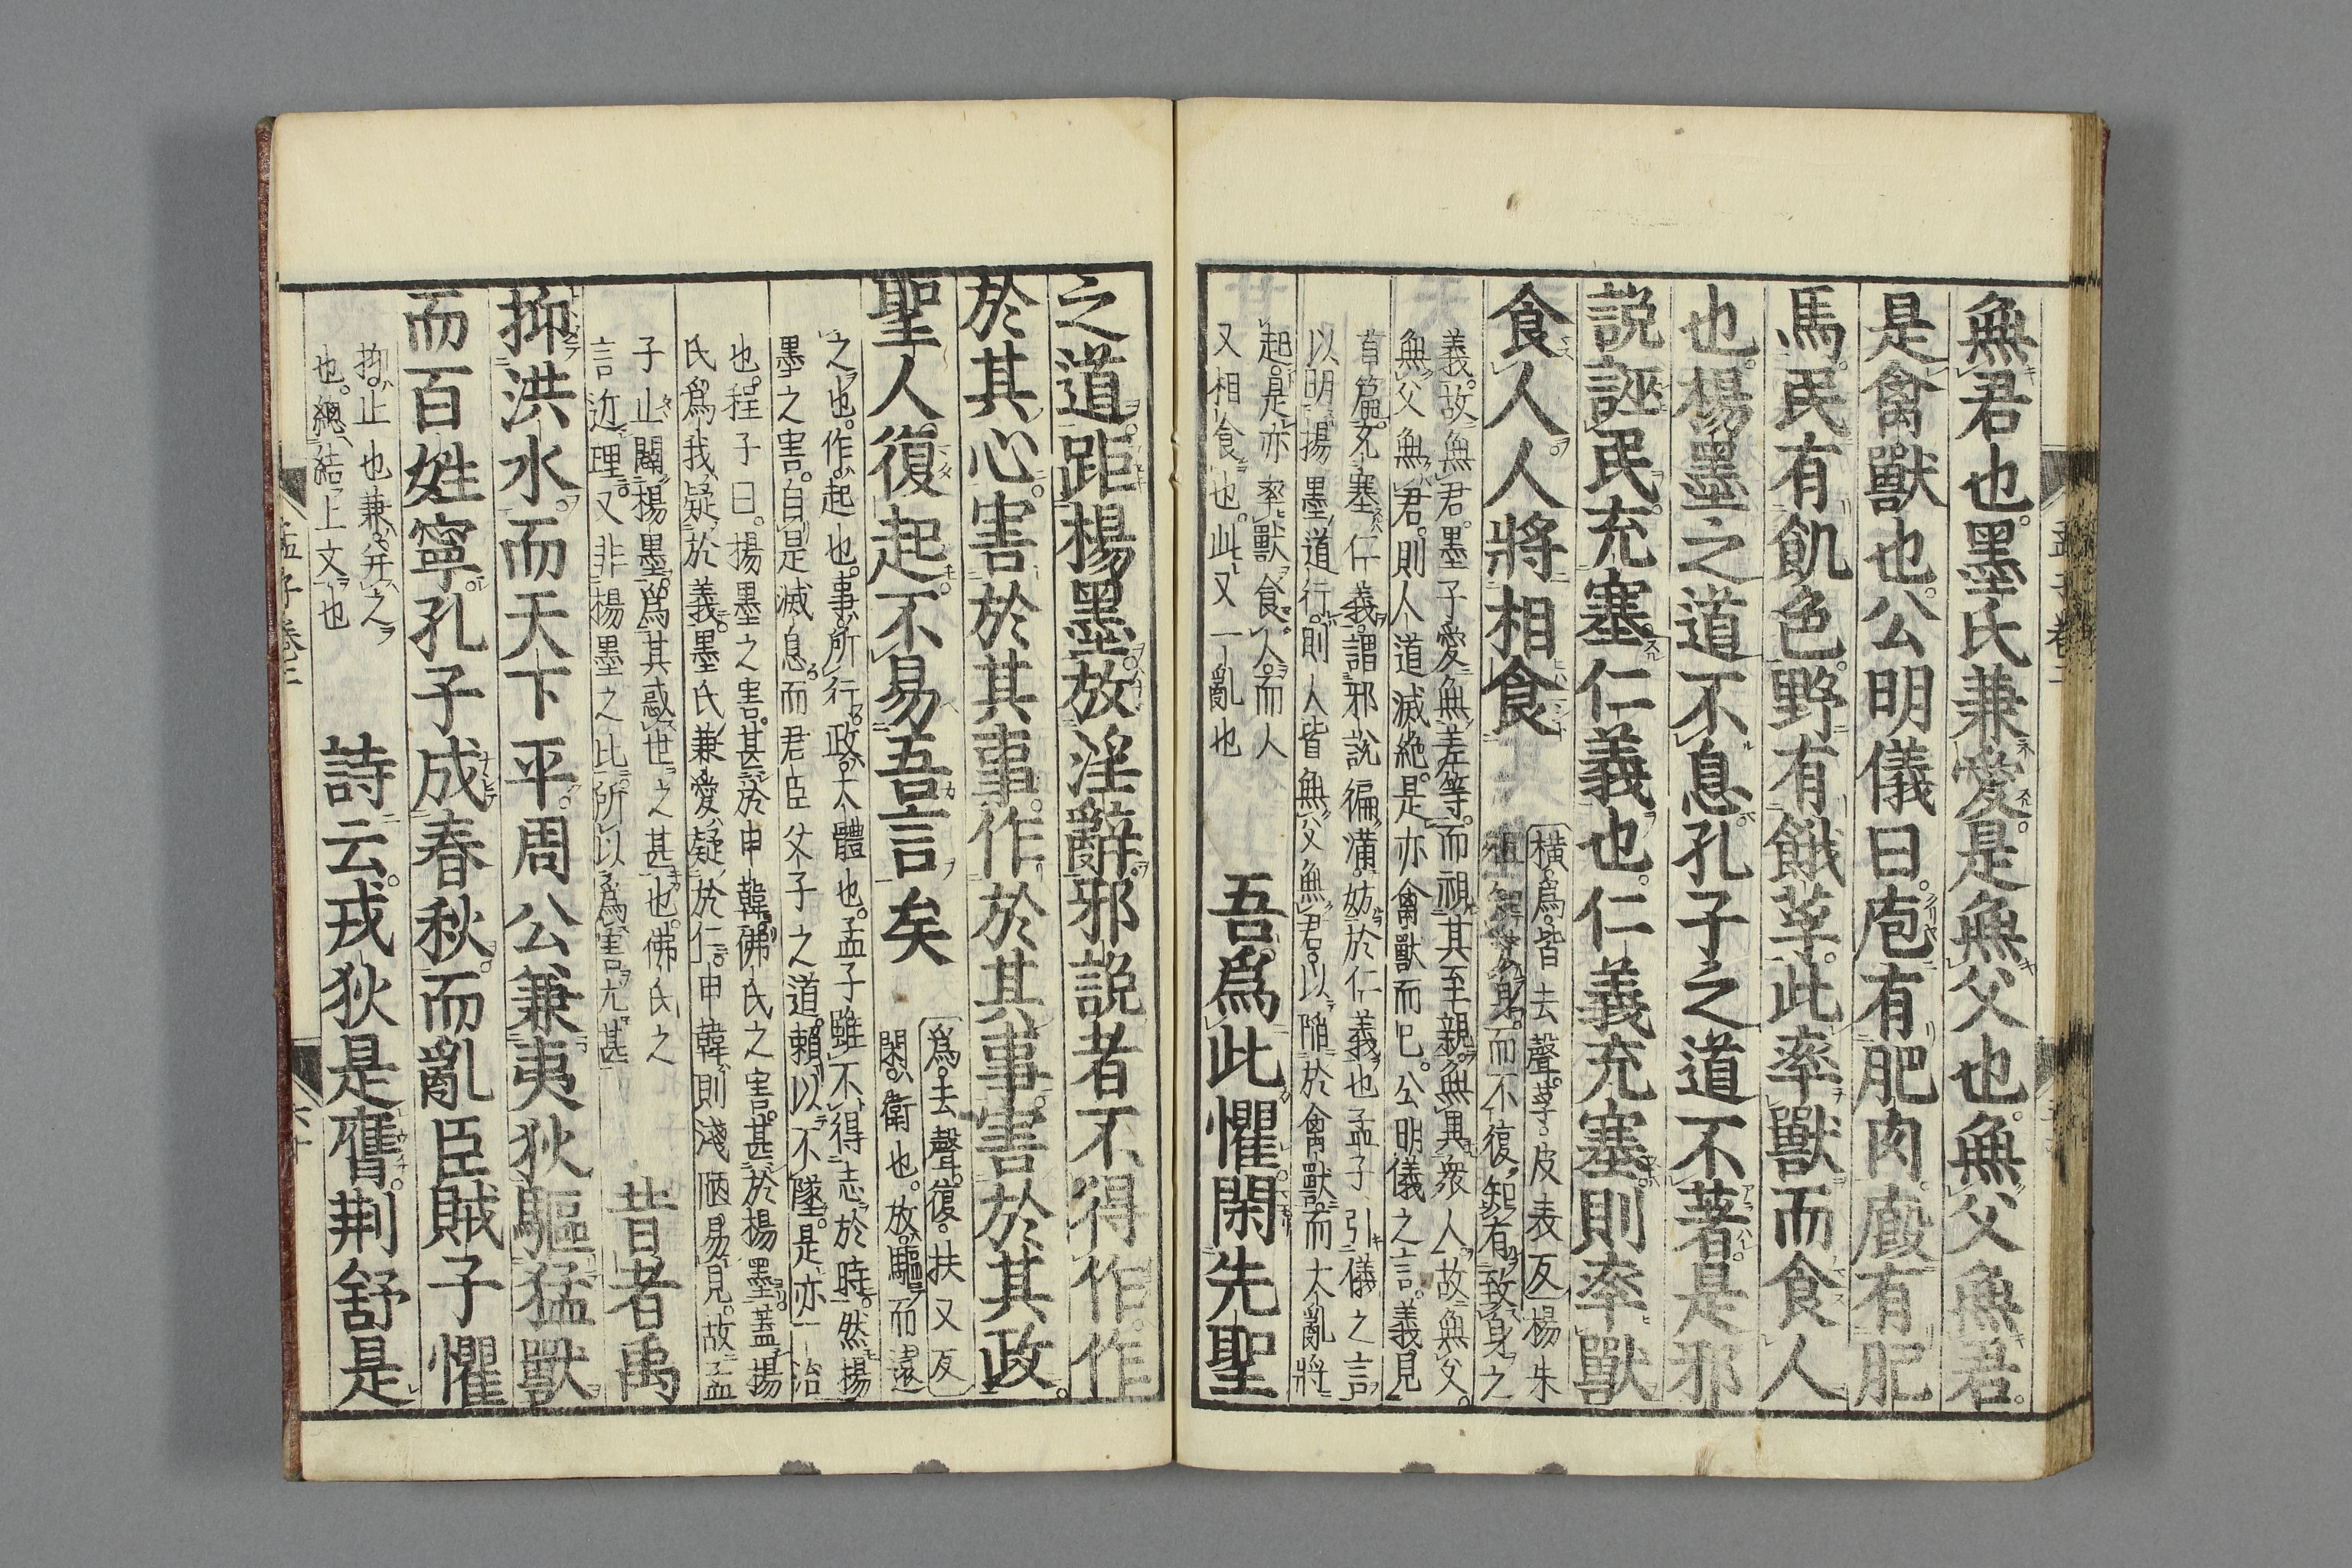 無君也墨氏兼愛是無父也無父無君
是禽獸也公明儀曰庖有肥肉廄有肥
馬民有飢色野有餓莩此率獸而食人
也楊墨之道不息孔子之道不著是邪
説誣民充塞仁義也仁義充塞則率獸
食人人將相食
橫爲皆去聲莩皮表反楊朱
但知愛身而不復知有致身之
義故無君墨子愛無差等而視其至親無異衆人故無父
無父無君則人道滅絶是亦禽獸而已公明儀之言義見
首篇充塞仁義謂邪説徧滿妨於仁義也孟子引儀之言
以明楊墨道行則人皆無父無君以陷於禽獸而大亂將
起是亦率獸食人而人
又相食也此又一亂也
吾爲此懼閑先聖
之道距楊墨放淫辭邪説者不得作作
於其心害於其事作於其事害於其政
聖人復起不易吾言矣
爲去聲復扶又反
閑衛也放驅而遠
之也作起也事所行政大體也孟子雖不得志於時然楊
墨之害自是滅息而君臣父子之道賴以不墜是亦一治
也程子曰楊墨之害甚於申韓佛氏之害甚於楊墨蓋楊
氏爲我疑於義墨氏兼愛疑於仁申韓則淺陋易見故孟
子止闢楊墨爲其惑世之甚也佛氏之
言近理又非楊墨之比所以爲害尤甚
昔者禹
抑洪水而天下平周公兼夷狄驅猛獸
而百姓寧孔子成春秋而亂臣賊子懼
抑止也兼并之
也總結上文也
詩云戎狄是膺荆舒是
孟子卷三
六十